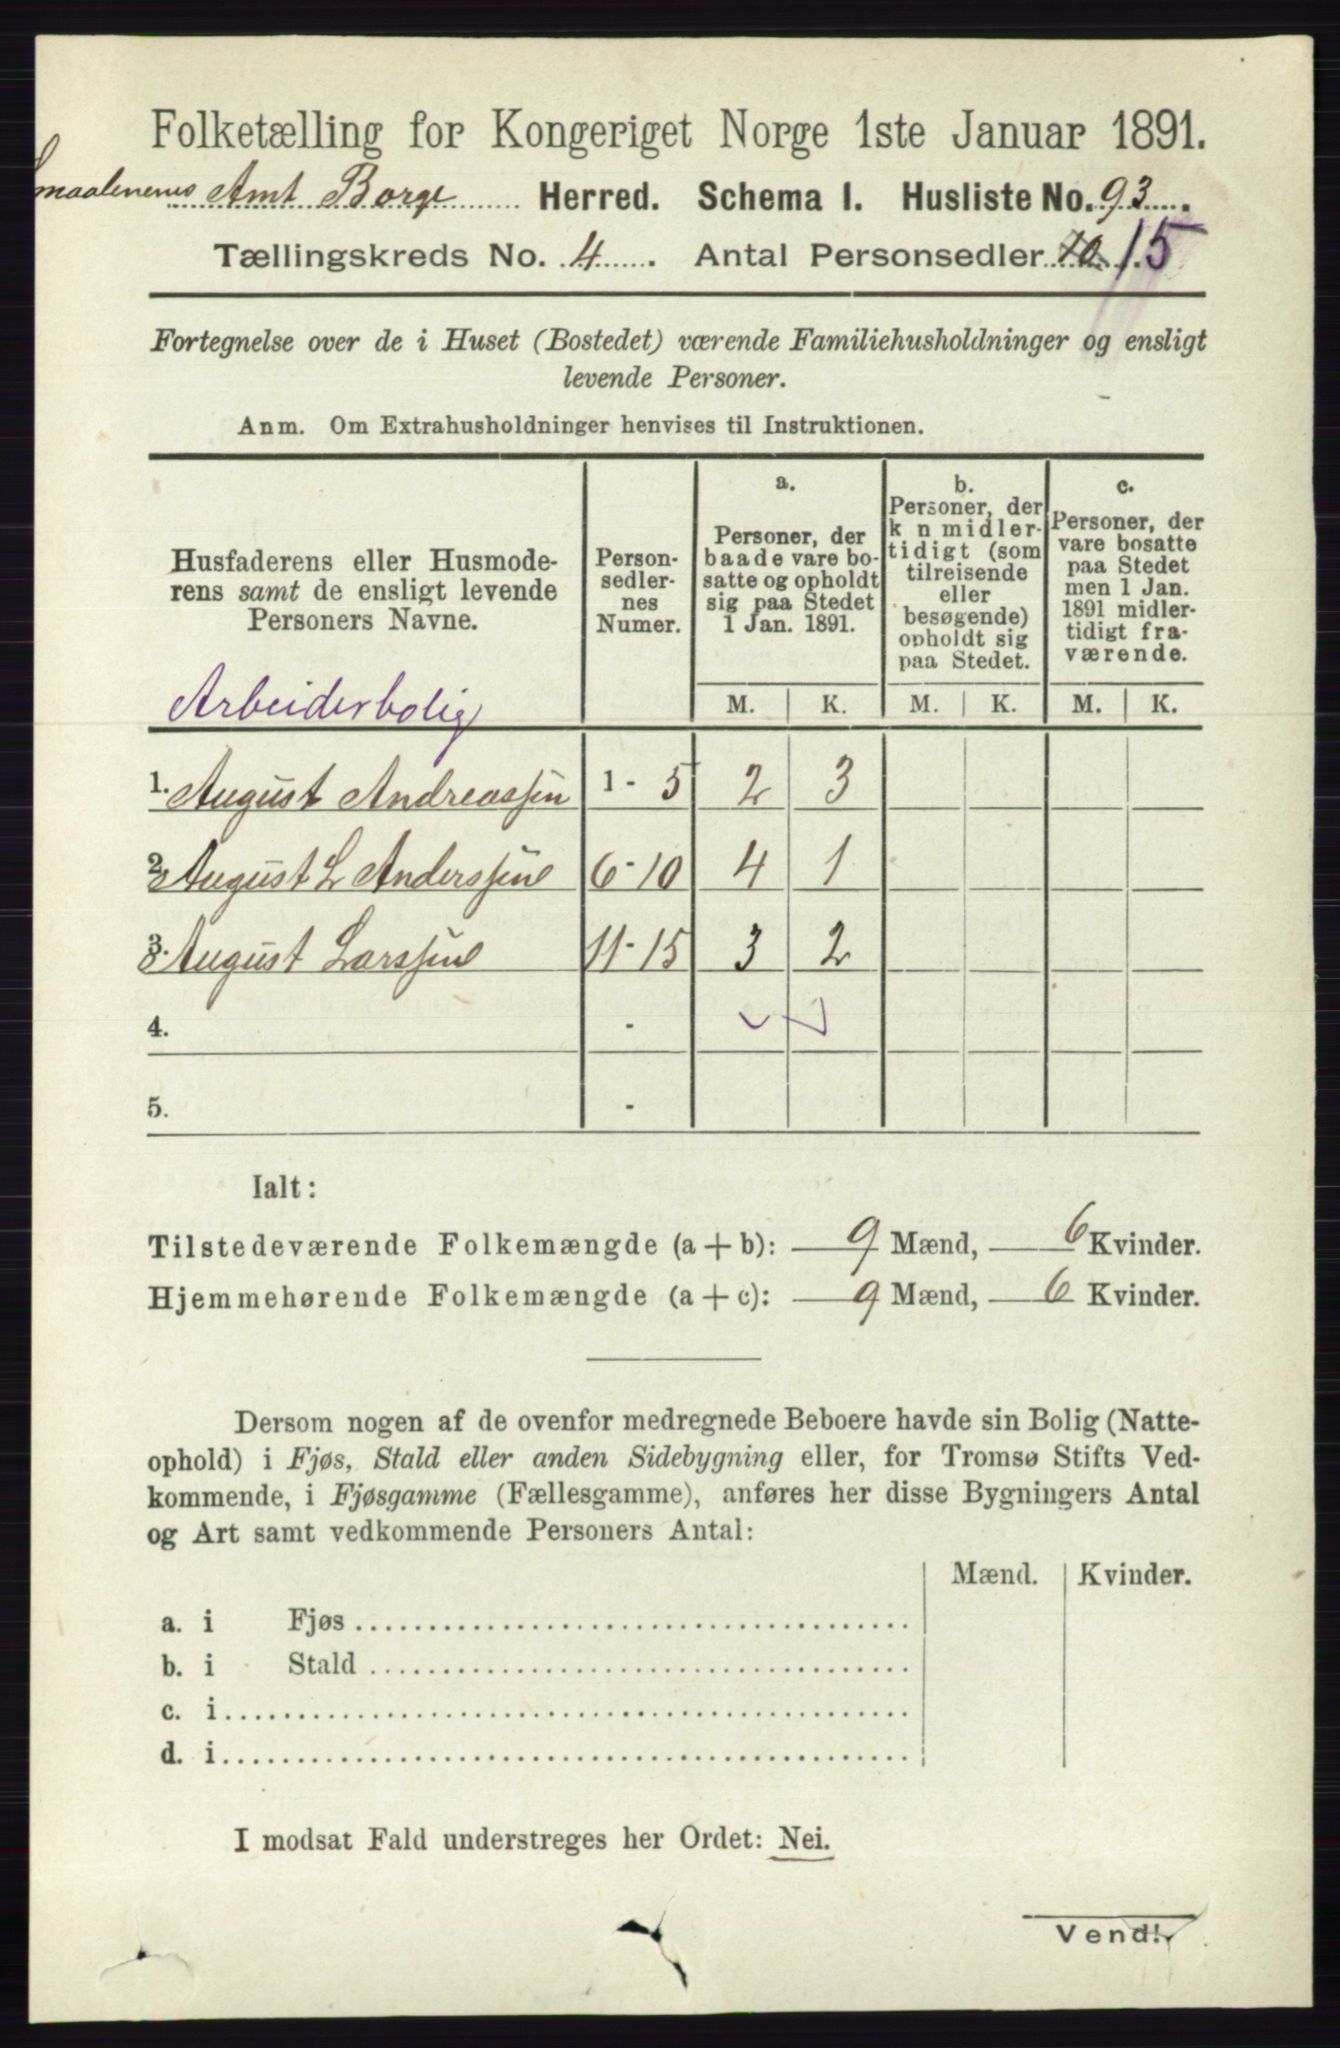 Folketælling for Kongeriget Norge 1ste Januar 1891.
Smaalenenes Amt Borge Herred. Schema I. Husliste No. 93.
Tællingskreds No. 4. Antal Personsedler 10 15
Fortegnelse over de i Huset (Bostedet) værende Familiehusholdninger og ensligt
levende Personer.
Anm. Om Extrahusholdninger henvises til Instruktionen.
Husfaderens eller Husmode-
rens samt de ensligt levende
Personers Navne.
Arbeiderbolig
Person-
sedler-
nes
Numer.
a.
Personer, der
baade vare bo-
satte og opholdt
sig paa Stedet
1 Jan. 1891.
M. K.
b.
Personer, der
k n midler-
tidigt (som
tilreisende
eller
besøgende)
opholdt sig
paa Stedet.
M. K.
c.
Personer, der
vare bosatte
paa Stedet
men 1 Jan.
1891 midler-
tidigt fra-
værende.
M. K.
1. August Andreassen 1 - 5 2 3
2. August L Anderssen 6 - 10 4 1
3. August Larssen 11 - 15 3 2
4. -
5. -
Ialt:
Tilstedeværende Folkemængde (a + b): 9 Mænd, 6 Kvinder.
Hjemmehørende Folkemængde (a + c): 9 Mænd, 6 Kvinder.
Dersom nogen af de ovenfor medregnede Beboere havde sin Bolig (Natte-
ophold) i Fjøs, Stald eller anden Sidebygning eller, for Tromsø Stifts Ved-
kommende, i Fjøsgamme (Fællesgamme), anføres her disse Bygningers Antal
og Art samt vedkommende Personers Antal:
Mænd. Kvinder.
a. i Fjøs
b. i Stald
c. i
d. i
I modsat Fald understreges her Ordet: Nei.
Vend!